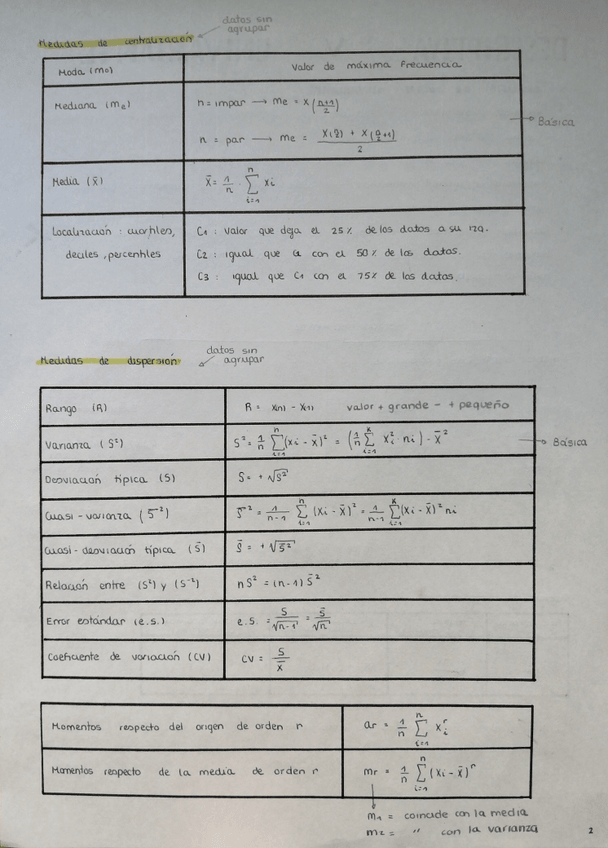 datos sin
agrupar
Medidas de centralización
Moda (Mo) Valor de máxima Frecuencia
Mediana (Me) n = impar → Me = X((n+1)/2)
n = par → Me = (X(n/2) + X(n/2+1))/2
Básica
Media (x̄) x̄ = 1/n · Σ_{i=1}^{n} xi
Localización : cuartiles, C1 : valor que deja el 25% de los datos a su izq.
deciles, percentiles C2 : igual que C1 con el 50% de los datos.
C3 : igual que C1 con el 75% de los datos.
datos sin
agrupar
Medidas de dispersión
Rango (R) R = X(n) - X(1) valor + grande - + pequeño
Varianza (S²) S² = 1/n Σ_{i=1}^{n} (xi - x̄)² = (1/n Σ_{i=1}^{k} xi² · ni) - x̄² Básica
Desviación típica (S) S = +√S²
Cuasi-varianza (S̄²) S̄² = 1/(n-1) Σ_{i=1}^{n} (xi - x̄)² = 1/(n-1) Σ_{i=1}^{k} (xi - x̄)² ni
Cuasi-desviación típica (S̄) S̄ = +√S̄²
Relación entre (S²) y (S̄²) nS² = (n-1) S̄²
Error estándar (e.s.) e.s. = S/√(n-1) = S̄/√n
Coeficiente de variación (CV) CV = S/x̄
Momentos respecto del origen de orden r ar = 1/n Σ_{i=1}^{n} xi^r
Momentos respecto de la media de orden r mr = 1/n Σ_{i=1}^{n} (xi - x̄)^r
m1 = coincide con la media
m2 = " con la varianza
2